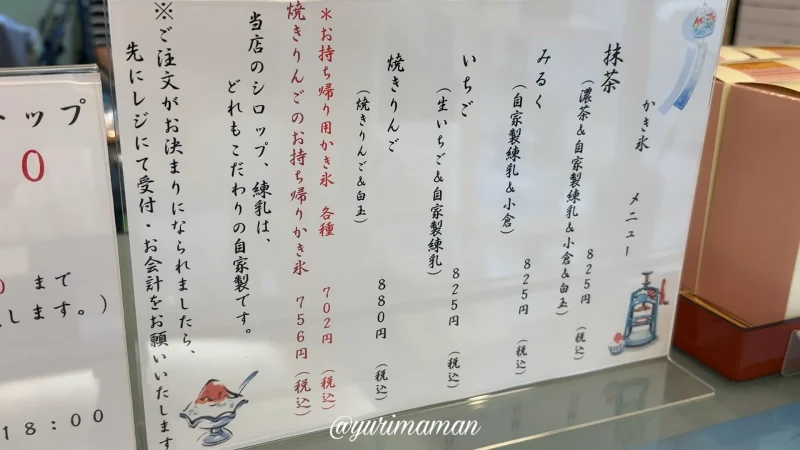 かき氷　メニュー
抹茶
（濃茶&自家製練乳&小倉&白玉）
825円　（税込）
みるく
（自家製練乳&小倉）
825円　（税込）
いちご
（生いちご&自家製練乳）
825円　（税込）
焼きりんご
（焼きりんご&白玉）
880円　（税込）
＊お持ち帰り用かき氷　各種　702円　（税込）
焼きりんごのお持ち帰りかき氷　756円（税込）
当店のシロップ、練乳は、
どれもこだわりの自家製です。
※ご注文がお決まりになられましたら、
先にレジにて受付・お会計をお願いいたします
ップ
0
まで
します。）
18：00
@yurimaman